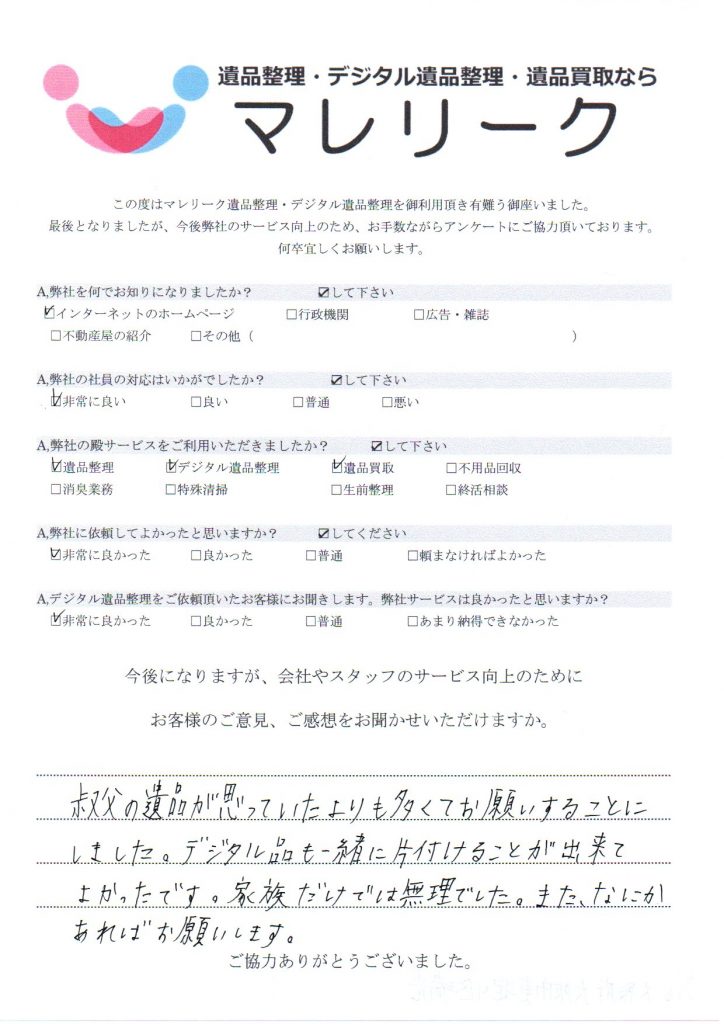 遺品整理・デジタル遺品整理・遺品買取なら
マレリーク
この度はマレリーク遺品整理・デジタル遺品整理を御利用頂き有難う御座いました。
最後となりましたが、今後弊社のサービス向上のため、お手数ながらアンケートにご協力頂いております。
何卒宜しくお願いします。
A,弊社を何でお知りになりましたか？ ☑して下さい
☑インターネットのホームページ □行政機関 □広告・雑誌
□不動産屋の紹介 □その他（ ）
A,弊社の社員の対応はいかがでしたか？ ☑して下さい
☑非常に良い □良い □普通 □悪い
A,弊社の殿サービスをご利用いただきましたか？ ☑して下さい
☑遺品整理 ☑デジタル遺品整理 ☑遺品買取 □不用品回収
□消臭業務 □特殊清掃 □生前整理 □終活相談
A,弊社に依頼してよかったと思いますか？ ☑してください
☑非常に良かった □良かった □普通 □頼まなければよかった
A,デジタル遺品整理をご依頼頂いたお客様にお聞きします。弊社サービスは良かったと思いますか？
☑非常に良かった □良かった □普通 □あまり納得できなかった
今後になりますが、会社やスタッフのサービス向上のために
お客様のご意見、ご感想をお聞かせいただけますか。
叔父の遺品が思っていたよりも多くてお願いすることに
しました。デジタル品も一緒に片付けることが出来て
よかったです。家族だけでは無理でした。また、なにか
あればお願いします。
ご協力ありがとうございました。